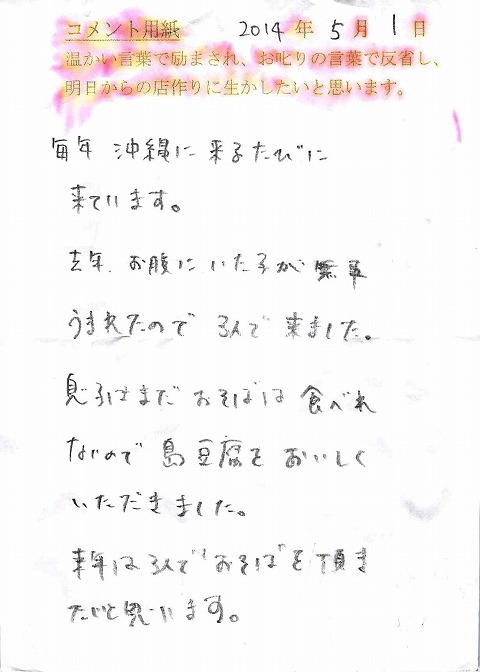 コメント用紙 2014 年 5 月 1 日
温かい言葉で励まされ、お叱りの言葉で反省し、
明日からの店作りに生かしたいと思います。
毎年 沖縄に来るたびに
来ています。
去年、お腹にいた子が 無事
うまれたので 3人で 来ました。
息子はまだ おそばは 食べれ
ないので 島豆腐を おいしく
いただきました。
来年は3人で "おそば"を 頂き
たいと思います。